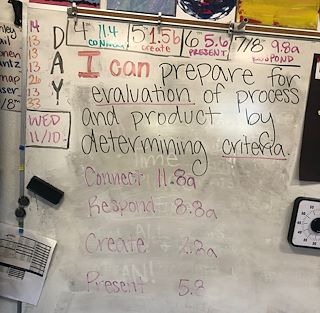 4th 11.4 connect 5 1.5b create 6 5.6 PRESENT 7/8 9.8a RESPOND
14
13
13
13
26
13
33
D
A
Y
WED
11/10
I can prepare for
evaluation of process
and product by
determining criteria.
Connect 11.8a
Respond 8.8a
Create 2.8a
Present 5.8